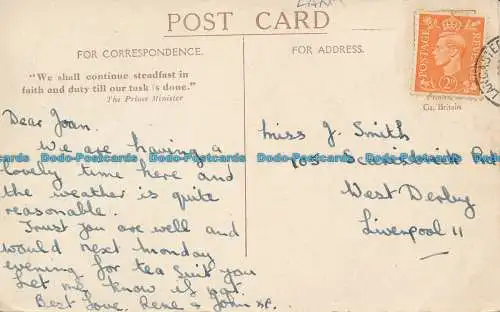 LAN
POST CARD
FOR CORRESPONDENCE.
FOR ADDRESS.
"We shall continue steadfast in
faith and duty till our task is done."
The Prime Minister
POSTAGE
REVENUE
2D
LANCASTER
Gt. Britain
Dear Joan.
We are having a
lovely time here and
the weather is quite
reasonable.
Trust you are well and
would next monday
evening for tea suit you
Let me know if not.
Best Love. Rene & John xx.
Miss J. Smith
105 Scarisbrick Rd
West Derby
Liverpool 11
Dodo-Postcards Dodo-Postcards Dodo-Postcards Dodo-Postcards